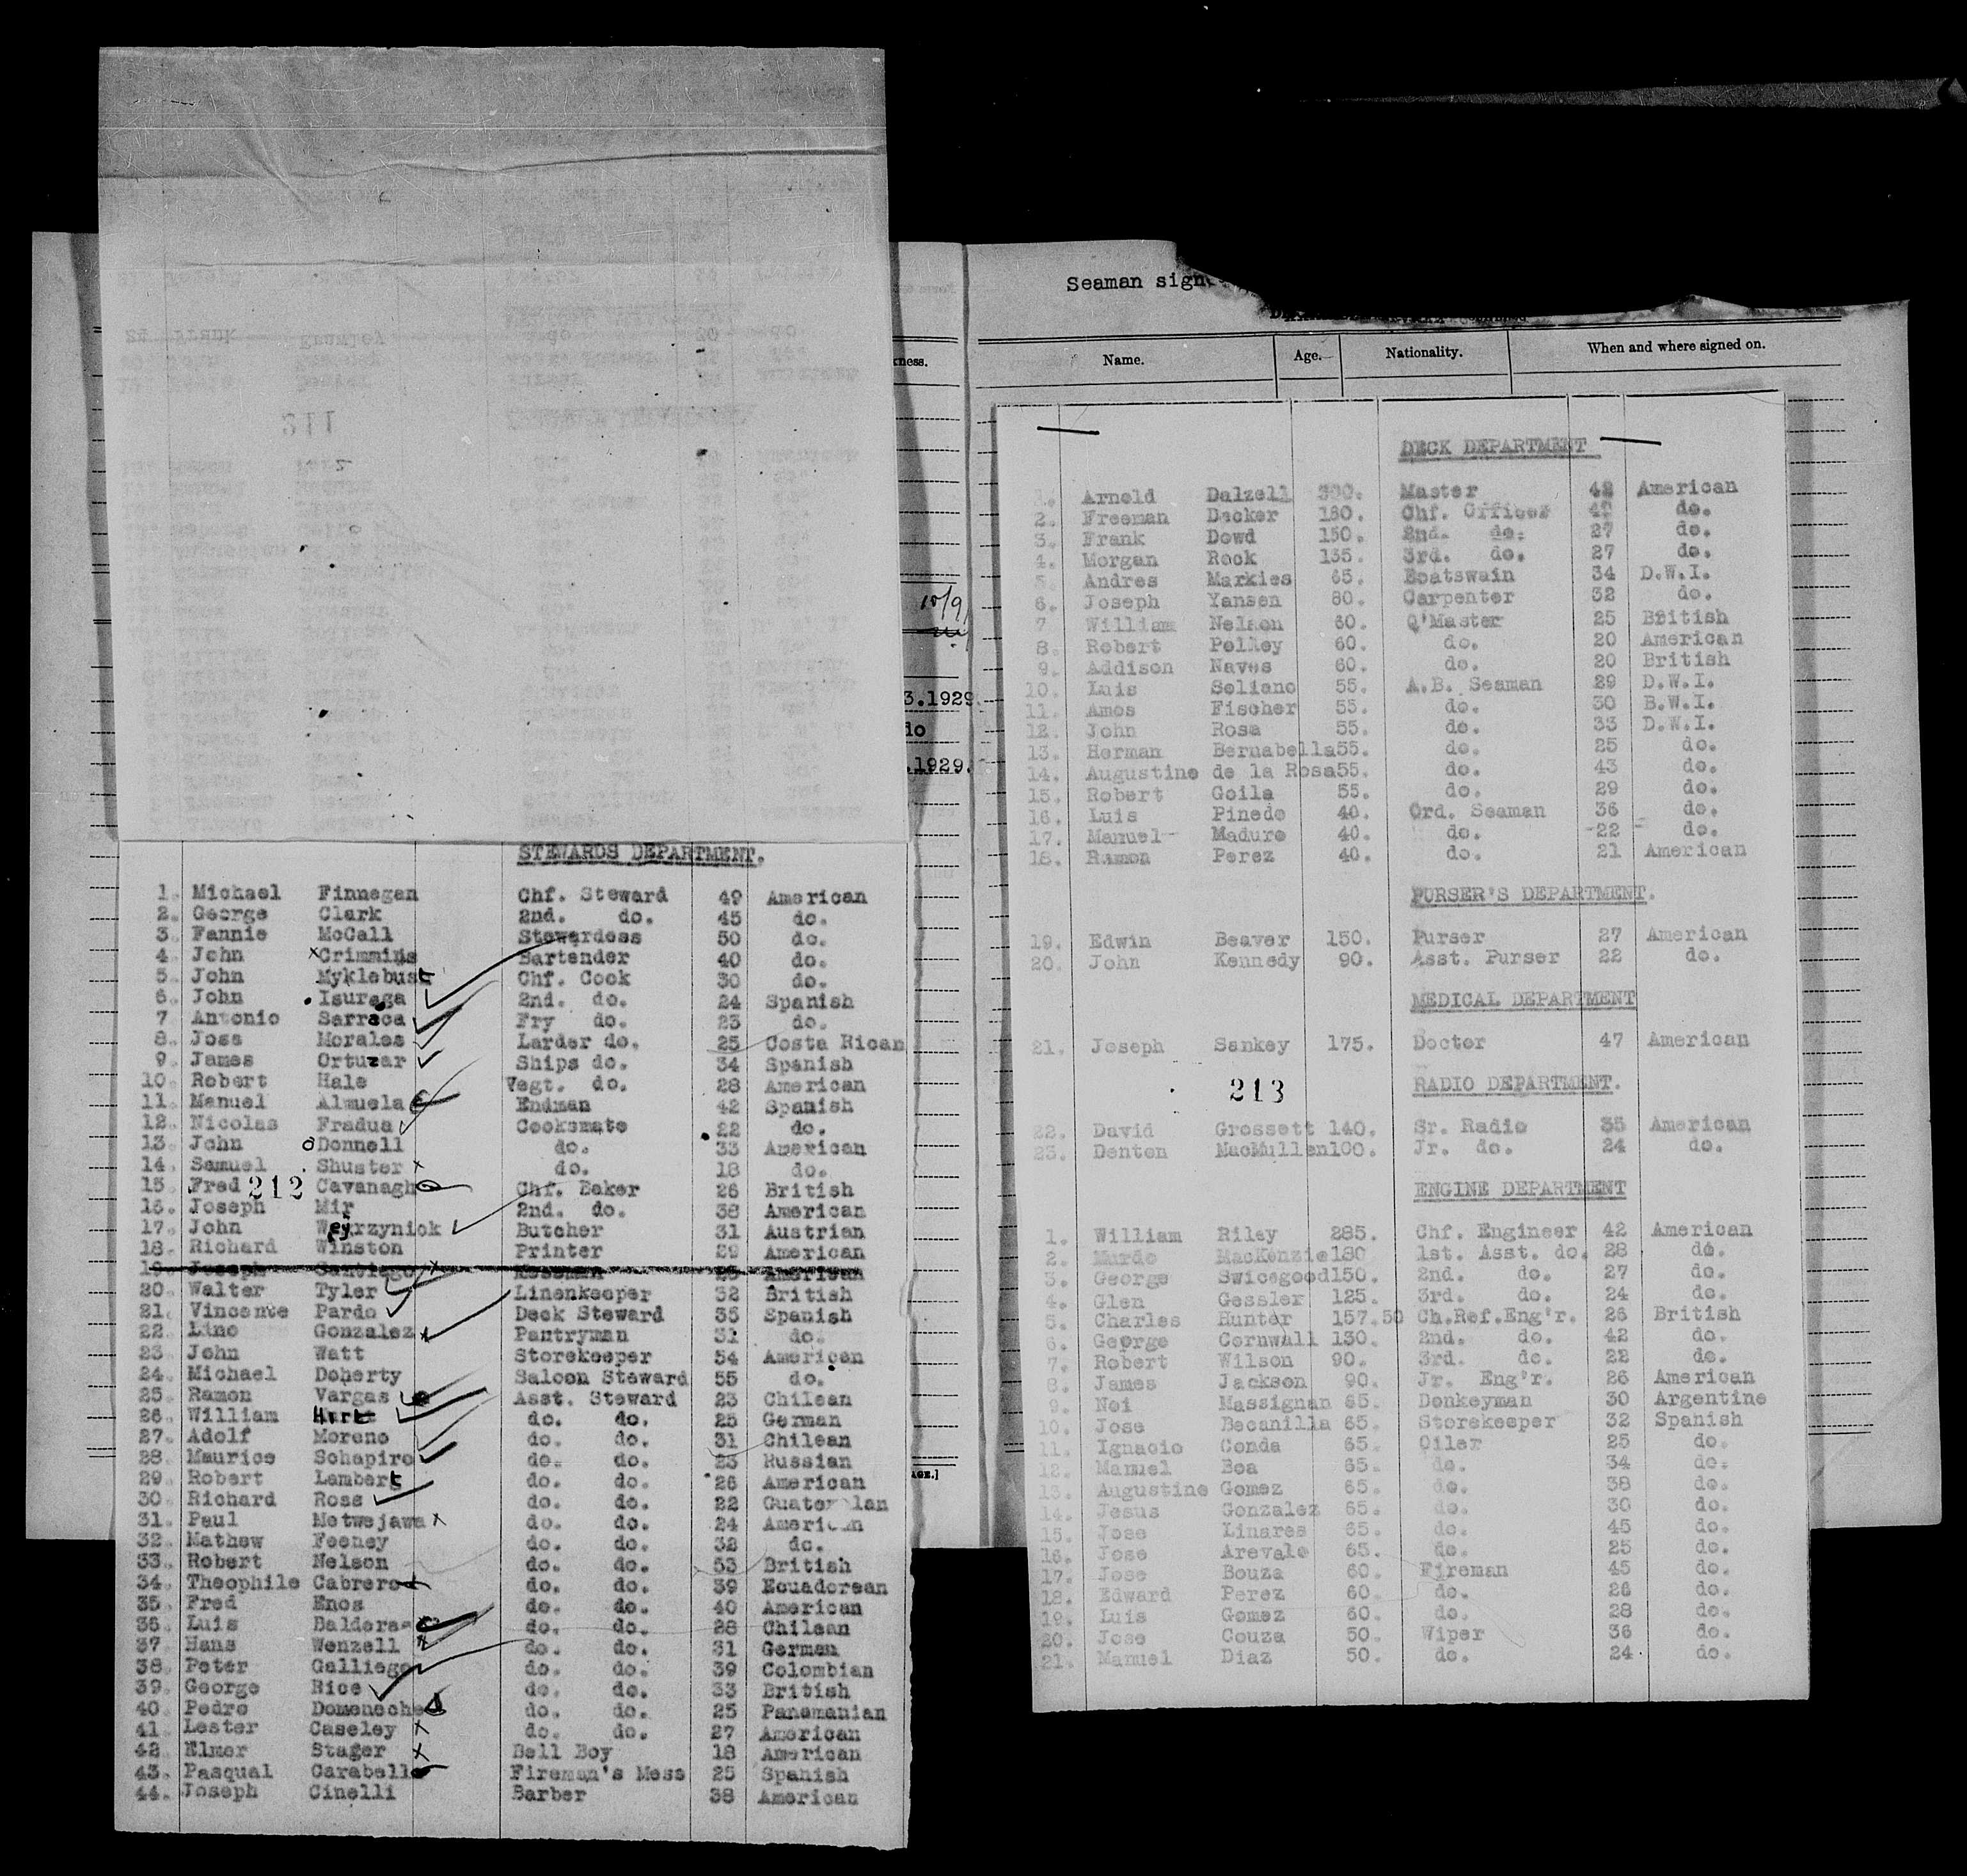 STEWARDS DEPARTMENT.
1. Michael Finnegan Chf. Steward 49 American
2. George Clark 2nd. do. 45 do.
3. Fannie McCall Stewardess 50 do.
4. John xCrimmins Bartender 40 do.
5. John Myklebust Chf. Cook 30 do.
6. John Isuraga 2nd. do. 24 Spanish
7 Antonio Sarraca Fry do. 23 do.
8. Jose Morales Larder do. 25 Costa Rican
9. James Ortuzar Ships do. 34 Spanish
10. Robert Hale Vegt. do. 28 American
11. Manuel Almuela Endman 42 Spanish
12. Nicolas Fradua Cooksmate 22 do.
13. John oDonnell do. 33 American
14. Samuel Shuster x do. 18 do.
15. Fred 212 Cavanagh Chf. Baker 26 British
16. Joseph Mir 2nd. do. 38 American
17. John Wejrzyniok Butcher 31 Austrian
18. Richard Winston Printer 29 American
19. Joseph Santiago x Messman 25 American
20. Walter Tyler Linenkeeper 32 British
21. Vincente Pardo Deck Steward 35 Spanish
22. Lino Gonzalez x Pantryman 31 do.
23. John Watt Storekeeper 54 American
24. Michael Doherty Saloon Steward 55 do.
25. Ramon Vargas Asst. Steward 23 Chilean
26. William do. do. 25 German
27. Adolf Moreno do. do. 31 Chilean
28. Maurice Schapiro do. do. 23 Russian
29. Robert Lambert do. do. 26 American
30. Richard Ross do. do. 22 Guatemalan
31. Paul Metwejawa x do. do. 24 American
32. Mathew Feeney do. do. 32 do.
33. Robert Nelson do. do. 53 British
34. Theophile Cabrero do. do. 39 Ecuadorean
35. Fred Enos do. do. 40 American
36. Luis Balderas do. do. 28 Chilean
37. Hans Wenzell do. do. 31 German
38. Peter Galliego do. do. 39 Colombian
39. George Rice do. do. 33 British
40. Pedro Domeneche do. do. 25 Panamanian
41. Lester Caseley x do. do. 27 American
42. Elmer Stager x Bell Boy 18 American
43. Pasqual Carabello Fireman's Mess 25 Spanish
44. Joseph Cinelli Barber 38 American
211
kness.
10/9
3.1929.
do
.1929.
AGE.]
Seaman sign
Name. Age. Nationality. When and where signed on.
DECK DEPARTMENT
1. Arnold Dalzell 300. Master 42 American
2. Freeman Decker 180. Chf. Officer 42 do.
3. Frank Dowd 150. 2nd. do. 27 do.
4. Morgan Rock 135. 3rd. do. 27 do.
5. Andres Markies 65. Boatswain 34 D.W.I.
6. Joseph Yansen 80. Carpenter 32 do.
7 William Nelson 60. Q'Master 25 British
8. Robert Pelkey 60. do. 20 American
9. Addison Naves 60. do. 20 British
10. Luis Soliano 55. A.B. Seaman 29 D.W.I.
11. Amos Fischer 55. do. 30 B.W.I.
12. John Rosa 55. do. 33 D.W.I.
13. Herman Bernabella 55. do. 25 do.
14. Augustine de la Rosa 55. do. 43 do.
15. Robert Goila 55. do. 29 do.
16. Luis Pinedo 40. Ord. Seaman 36 do.
17. Manuel Maduro 40. do. 22 do.
18. Ramon Perez 40. do. 21 American
PURSER'S DEPARTMENT.
19. Edwin Beaver 150. Purser 27 American
20. John Kennedy 90. Asst. Purser 22 do.
MEDICAL DEPARTMENT
21. Joseph Sankey 175. Doctor 47 American
213
RADIO DEPARTMENT.
22. David Grossett 140. Sr. Radio 35 American
23. Denton MacMullen 100. Jr. do. 24 do.
ENGINE DEPARTMENT
1. William Riley 285. Chf. Engineer 42 American
2. Murdo MacKenzie 180 1st. Asst. do. 28 do.
3. George Swicegood 150. 2nd. do. 27 do.
4. Glen Gessler 125. 3rd. do. 24 do.
5. Charles Hunter 157.50 Ch.Ref.Eng'r. 26 British
6. George Cornwall 130. 2nd. do. 42 do.
7. Robert Wilson 90. 3rd. do. 22 do.
8. James Jackson 90. Jr. Eng'r. 26 American
9. Noi Massignan 65. Donkeyman 30 Argentine
10. Jose Becanilla 65. Storekeeper 32 Spanish
11. Ignacio Conda 65. Oiler 25 do.
12. Manuel Boa 65. do. 34 do.
13. Augustine Gomez 65. do. 38 do.
14. Jesus Gonzalez 65. do. 30 do.
15. Jose Linares 65. do. 45 do.
16. Jose Arevalo 65. do. 25 do.
17. Jose Bouza 60. Fireman 45 do.
18. Edward Perez 60. do. 26 do.
19. Luis Gomez 60. do. 28 do.
20. Jose Couza 50. Wiper 36 do.
21. Manuel Diaz 50. do. 24 do.